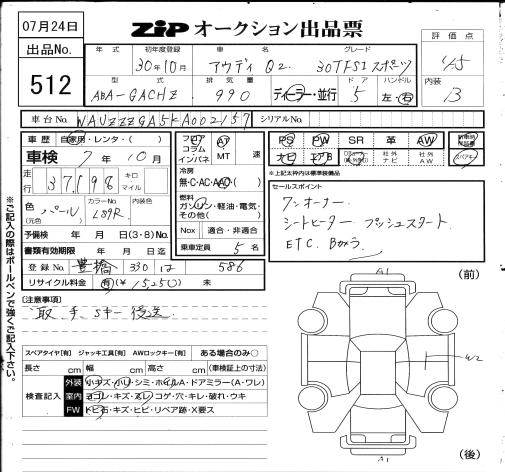 07月24日
ZIP オークション出品票
評価点
4.5
出品No.
512
年式 初年度登録 車名 グレード
30年10月 アウディ Q2 30TFSI スポーツ
型式 排気量 ドア ハンドル 内装
ABA-GACHZ 990 ディーラー・並行 5 左・右 B
車台No. WAUZZZGA5KA002157 シリアルNo.
車歴 自家用・レンタ・( )
車検 7年10月
走行 37,198 キロ マイル
色 (元色) パール カラーNo. LS9R 内装色
予備検 年 月 日(3・8)No.
書類有効期限 年 月 日迄
登録No. 豊橋 330 は 586
リサイクル料金 有(¥15,250) 未
フロア コラム インパネ AT MT 速
冷房 無・C・AC・AAC
燃料 ガソリン・軽油・電気・その他( )
Nox 適合・非適合
乗車定員 5名
PS PW SR 革 AW
ナビ エアB 社外ナビ 社外AW スペアキー
※上記太枠内は標準装備品
セールスポイント
ワンオーナー
シートヒーター プッシュスタート
ETC Bカメラ
[注意事項]
取、手、Sキー 後送
(前)
A1
W2
A1
(後)
※ご記入の際はボールペンで強くご記入下さい。
スペアタイヤ[有] ジャッキ工具[有] AWロックキー[有] ある場合のみ○
長さ cm 幅 cm 高さ cm (車検証上の寸法)
検査記入
外装 小キズ・小ハリ・シミ・ホイルA・ドアミラー(A・ワレ)
室内 ヨゴレ・キズ・スレ・コゲ・穴・キレ・破れ・ウキ
FW トビ石・キズ・ヒビ・リペア跡・X要ス